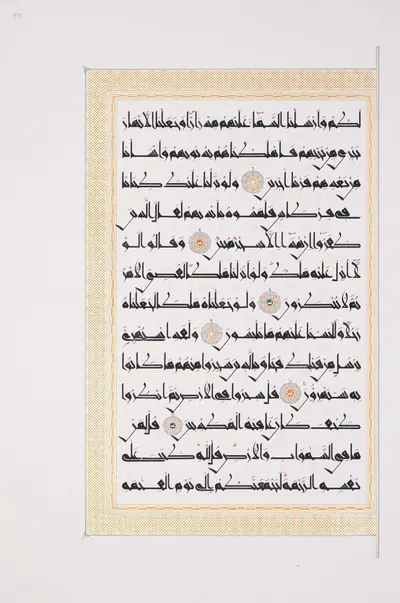 لكم وأرسلنا السماء عليهم مدرارا وجعلنا الأنهار
تجري من تحتهم فأهلكناهم بذنوبهم وأنشأنا
من بعدهم قرنا آخرين ولو نزلنا عليك كتابا
في قرطاس فلمسوه بأيديهم لقال الذين
كفروا إن هذا إلا سحر مبين وقالوا لو
لا أنزل عليه ملك ولو أنزلنا ملكا لقضي الأمر
ثم لا ينظرون ولو جعلناه ملكا لجعلناه
رجلا وللبسنا عليهم ما يلبسون ولقد استهزئ
برسل من قبلك فحاق بالذين سخروا منهم ما كانوا
به يستهزؤن قل سيروا في الأرض ثم انظروا
كيف كان عاقبة المكذبين قل لمن
ما في السموات والأرض قل لله كتب على
نفسه الرحمة ليجمعنكم إلى يوم القيمة